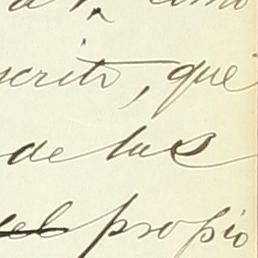 como
scrito, que
de las
el propio